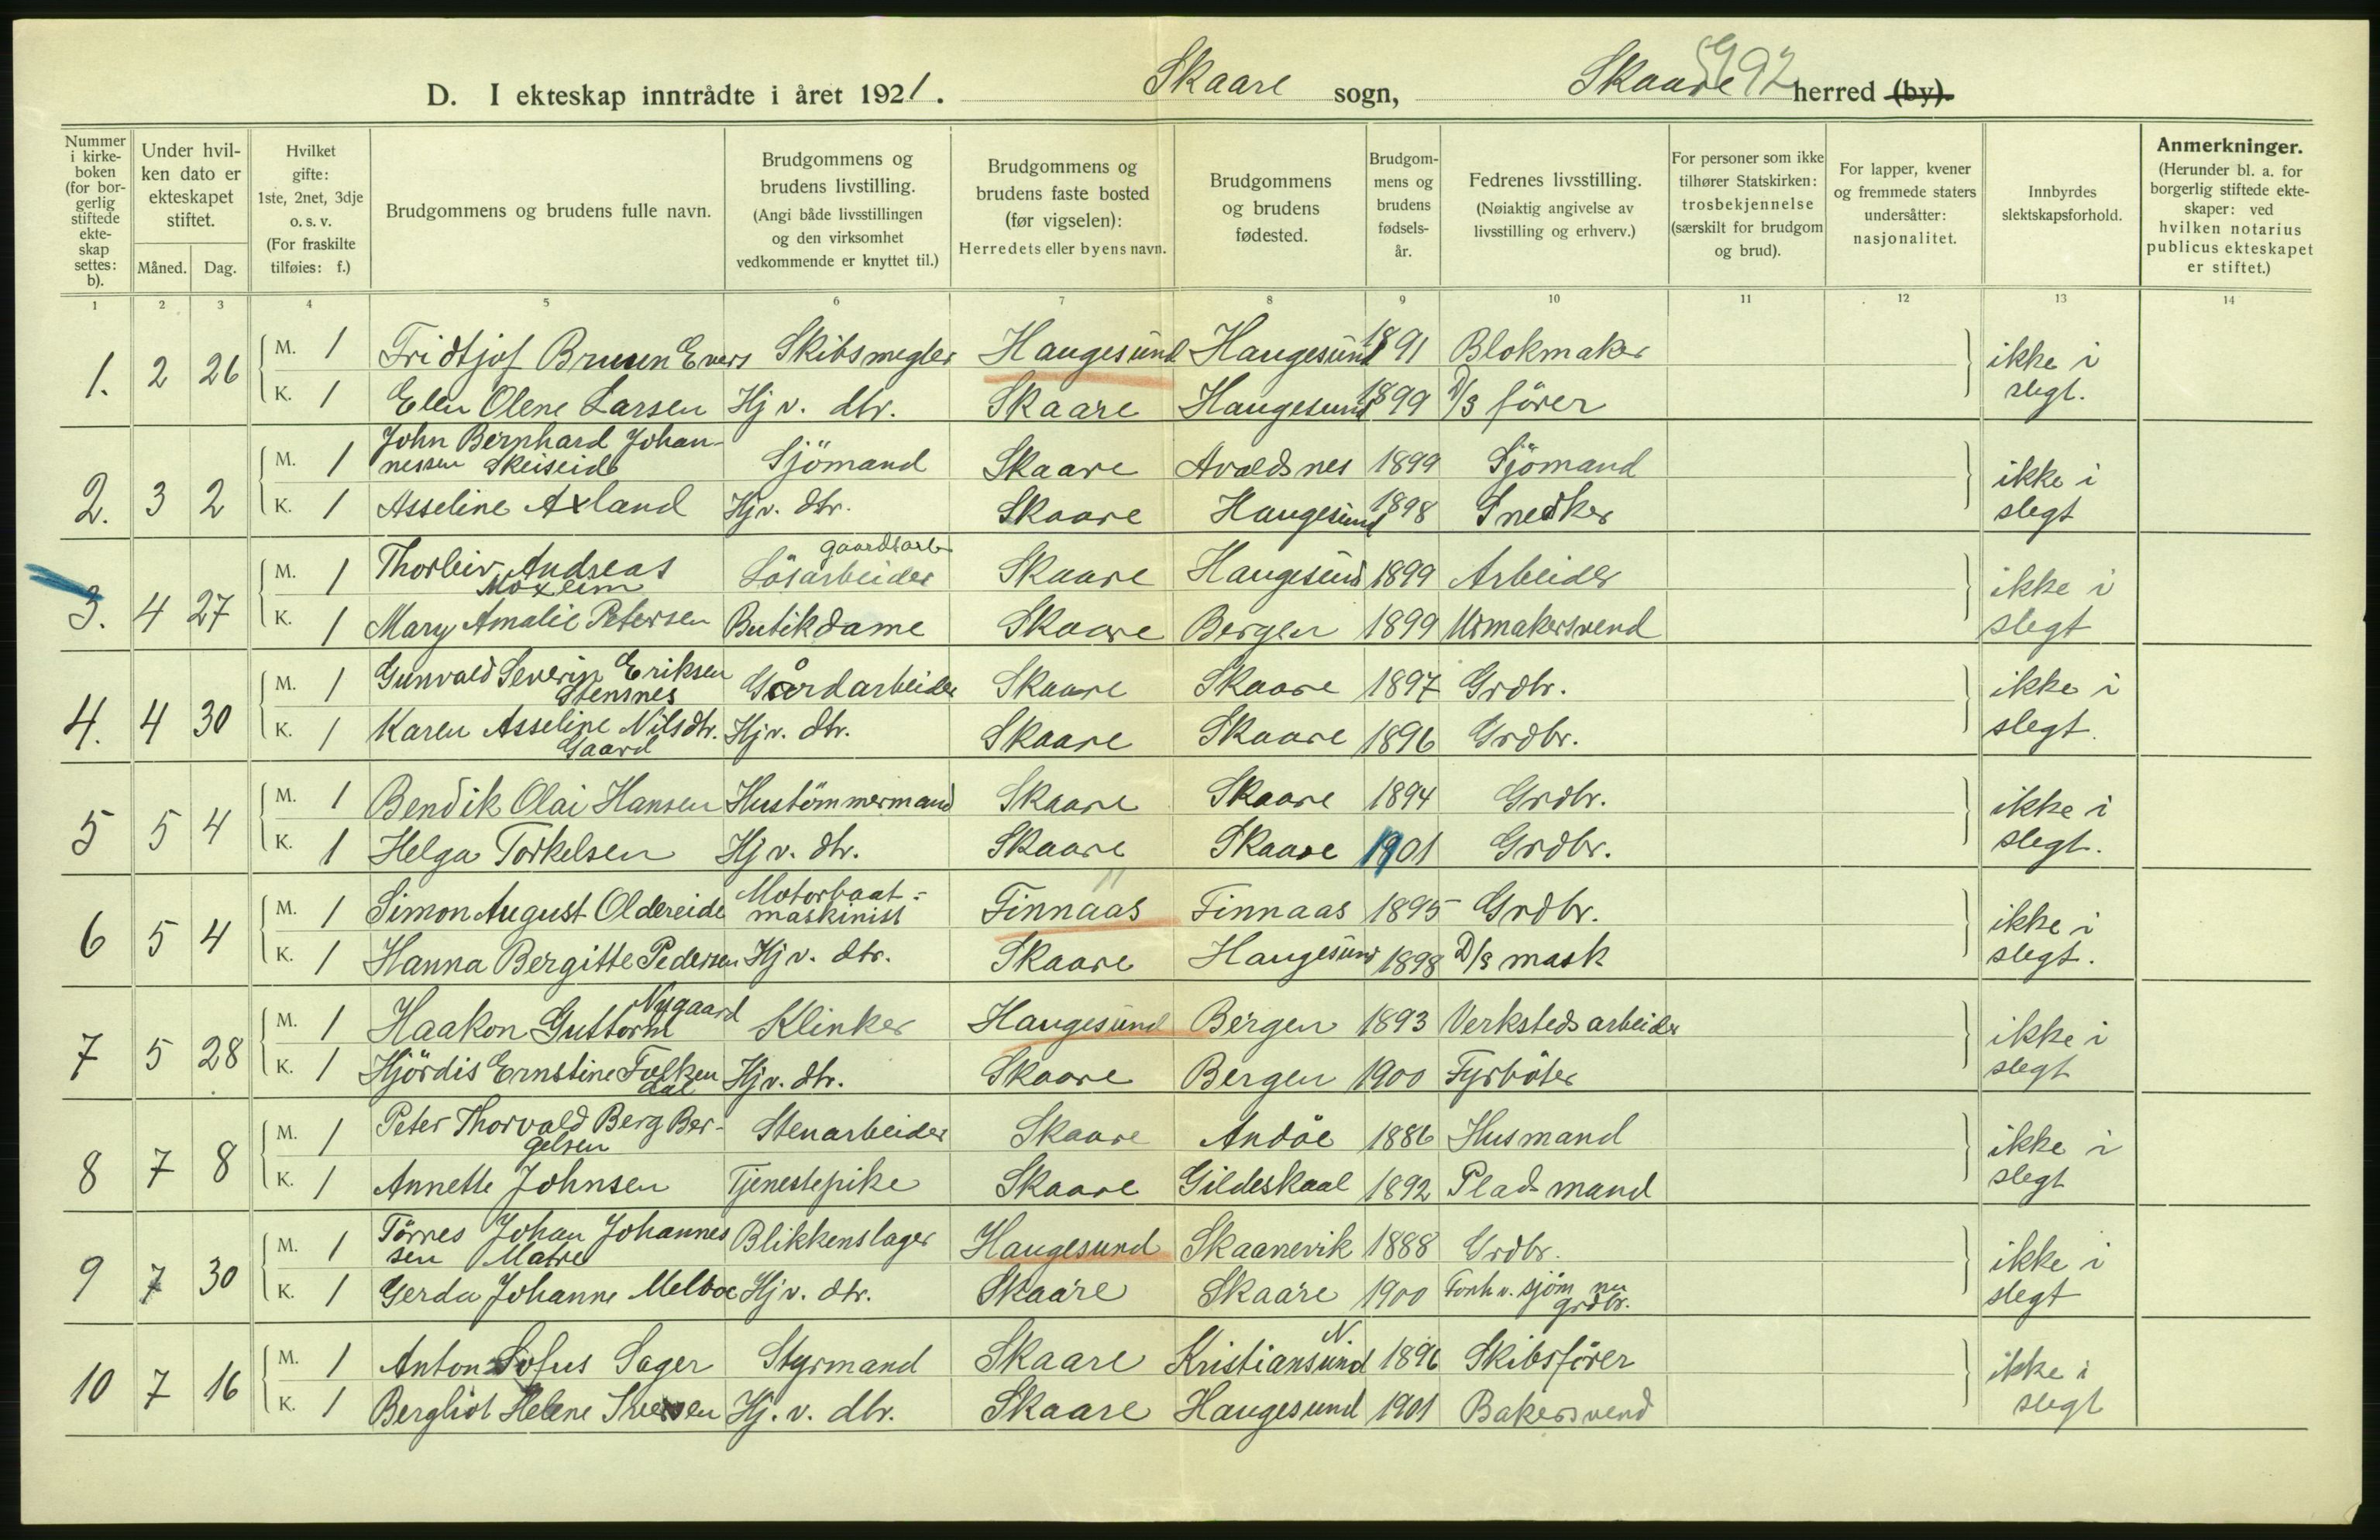 D. I ekteskap inntrådte i året 1921. Skaare sogn, Skaare herred (by).
Nummer i kirke-boken (for bor-gerlig stiftede ekte-skap settes: b).
Under hvil-ken dato er ekteskapet stiftet.
Måned. Dag.
Hvilket gifte: 1ste, 2net, 3dje o. s. v. (For fraskilte tilføies: f.)
Brudgommens og brudens fulle navn.
Brudgommens og brudens livstilling. (Angi både livsstillingen og den virksomhet vedkommende er knyttet til.)
Brudgommens og brudens faste bosted (før vigselen): Herredets eller byens navn.
Brudgommens og brudens fødested.
Brudgom-mens og brudens fødsels-år.
Fedrenes livsstilling. (Nøiaktig angivelse av livsstilling og erhverv.)
For personer som ikke tilhører Statskirken: trosbekjennelse (særskilt for brudgom og brud).
For lapper, kvener og fremmede staters undersåtter: nasjonalitet.
Innbyrdes slektskapsforhold.
Anmerkninger. (Herunder bl. a. for borgerlig stiftede ekte-skaper: ved hvilken notarius publicus ekteskapet er stiftet.)
1 2 3 4 5 6 7 8 9 10 11 12 13 14
1. 2 26 M. 1 Fridtjof Bruun Evers Skibsmegler Haugesund Haugesund 1891 Blokmaker ikke i slegt.
K. 1 Elen Olene Larsen Hj v. dtr. Skaare Haugesund 1899 D/s fører
2. 3 2 M. 1 John Bernhard Johan-nessen Skeiseid Sjömand Skaare Avaldsnes 1899 Sjömand ikke i slegt
K. 1 Asseline Axland Hj v. dtr. Skaare Haugesund 1898 Snedker
3. 4 27 M. 1 Thorleiv Andreas Moxleim Løsarbeider gaardsarb Skaare Haugesund 1899 Arbeider ikke i slegt
K. 1 Mary Amalie Petersen Butikdame Skaare Bergen 1899 Urmakersvend
4. 4 30 M. 1 Gunvald Severin Eriksen Stensnes Gårdarbeider Skaare Skaare 1897 Grdbr. ikke i slegt.
K. 1 Karen Asseline Nilsdtr. Gaard Hj v. dtr. Skaare Skaare 1896 Grdbr.
5 5 4 M. 1 Bendik Olai Hansen Hustömmermand Skaare Skaare 1894 Grdbr. ikke i slegt.
K. 1 Helga Torkelsen Hj v. dtr. Skaare Skaare 1901 Grdbr.
6 5 4 M. 1 Simon August Oldereide Motorbaat-maskinist Finnaas Finnaas 1895 Grdbr. ikke i slegt.
K. 1 Hanna Bergitte Pedersen Hj v. dtr. Skaare Haugesund 1898 D/s mask
7 5 28 M. 1 Haakon Guttorm Nygaard Klinker Haugesund Bergen 1893 Verkstedsarbeider ikke i slegt
K. 1 Hjördis Ernstine Falken dal Hj v. dtr. Skaare Bergen 1900 Fyrböter
8 7 8 M. 1 Peter Thorvald Berg Ber-gelsen Stenarbeider Skaare Andöe 1886 Husmand ikke i slegt
K. 1 Annette Johnsen Tjenestepike Skaare Gildeskaal 1892 Pladsmand
9 7 30 M. 1 Törres Johan Johannes sen Matre Blikkenslager Haugesund Skaanevik 1888 Grdbr. ikke i slegt
K. 1 Gerda Johanne Melboe Hj v. dtr. Skaare Skaare 1900 sjöm nu grdbr.
10 7 16 M. 1 Anton Sofus Sager Styrmand Skaare Kristiansund N 1896 Skibsförer ikke i slegt
K. 1 Bergliot Helene Iversen Hj. v. dtr. Skaare Haugesund 1901 Bakersvend